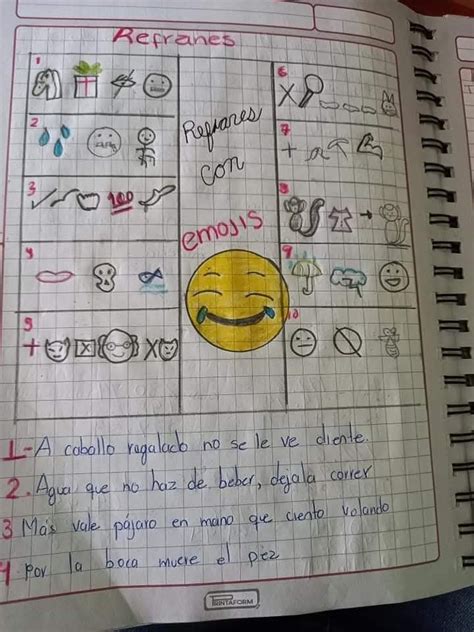 Refranes
1
2
3
100
4
5
+
X
Refranes
con
emojis
6
X
7
+
8
9
10
1.-A caballo regalado no se le ve diente.
2. Agua que no haz de beber, dejala correr
3 Más vale pájaro en mano que ciento volando
4 Por la boca muere el pez
PRINTAFORM